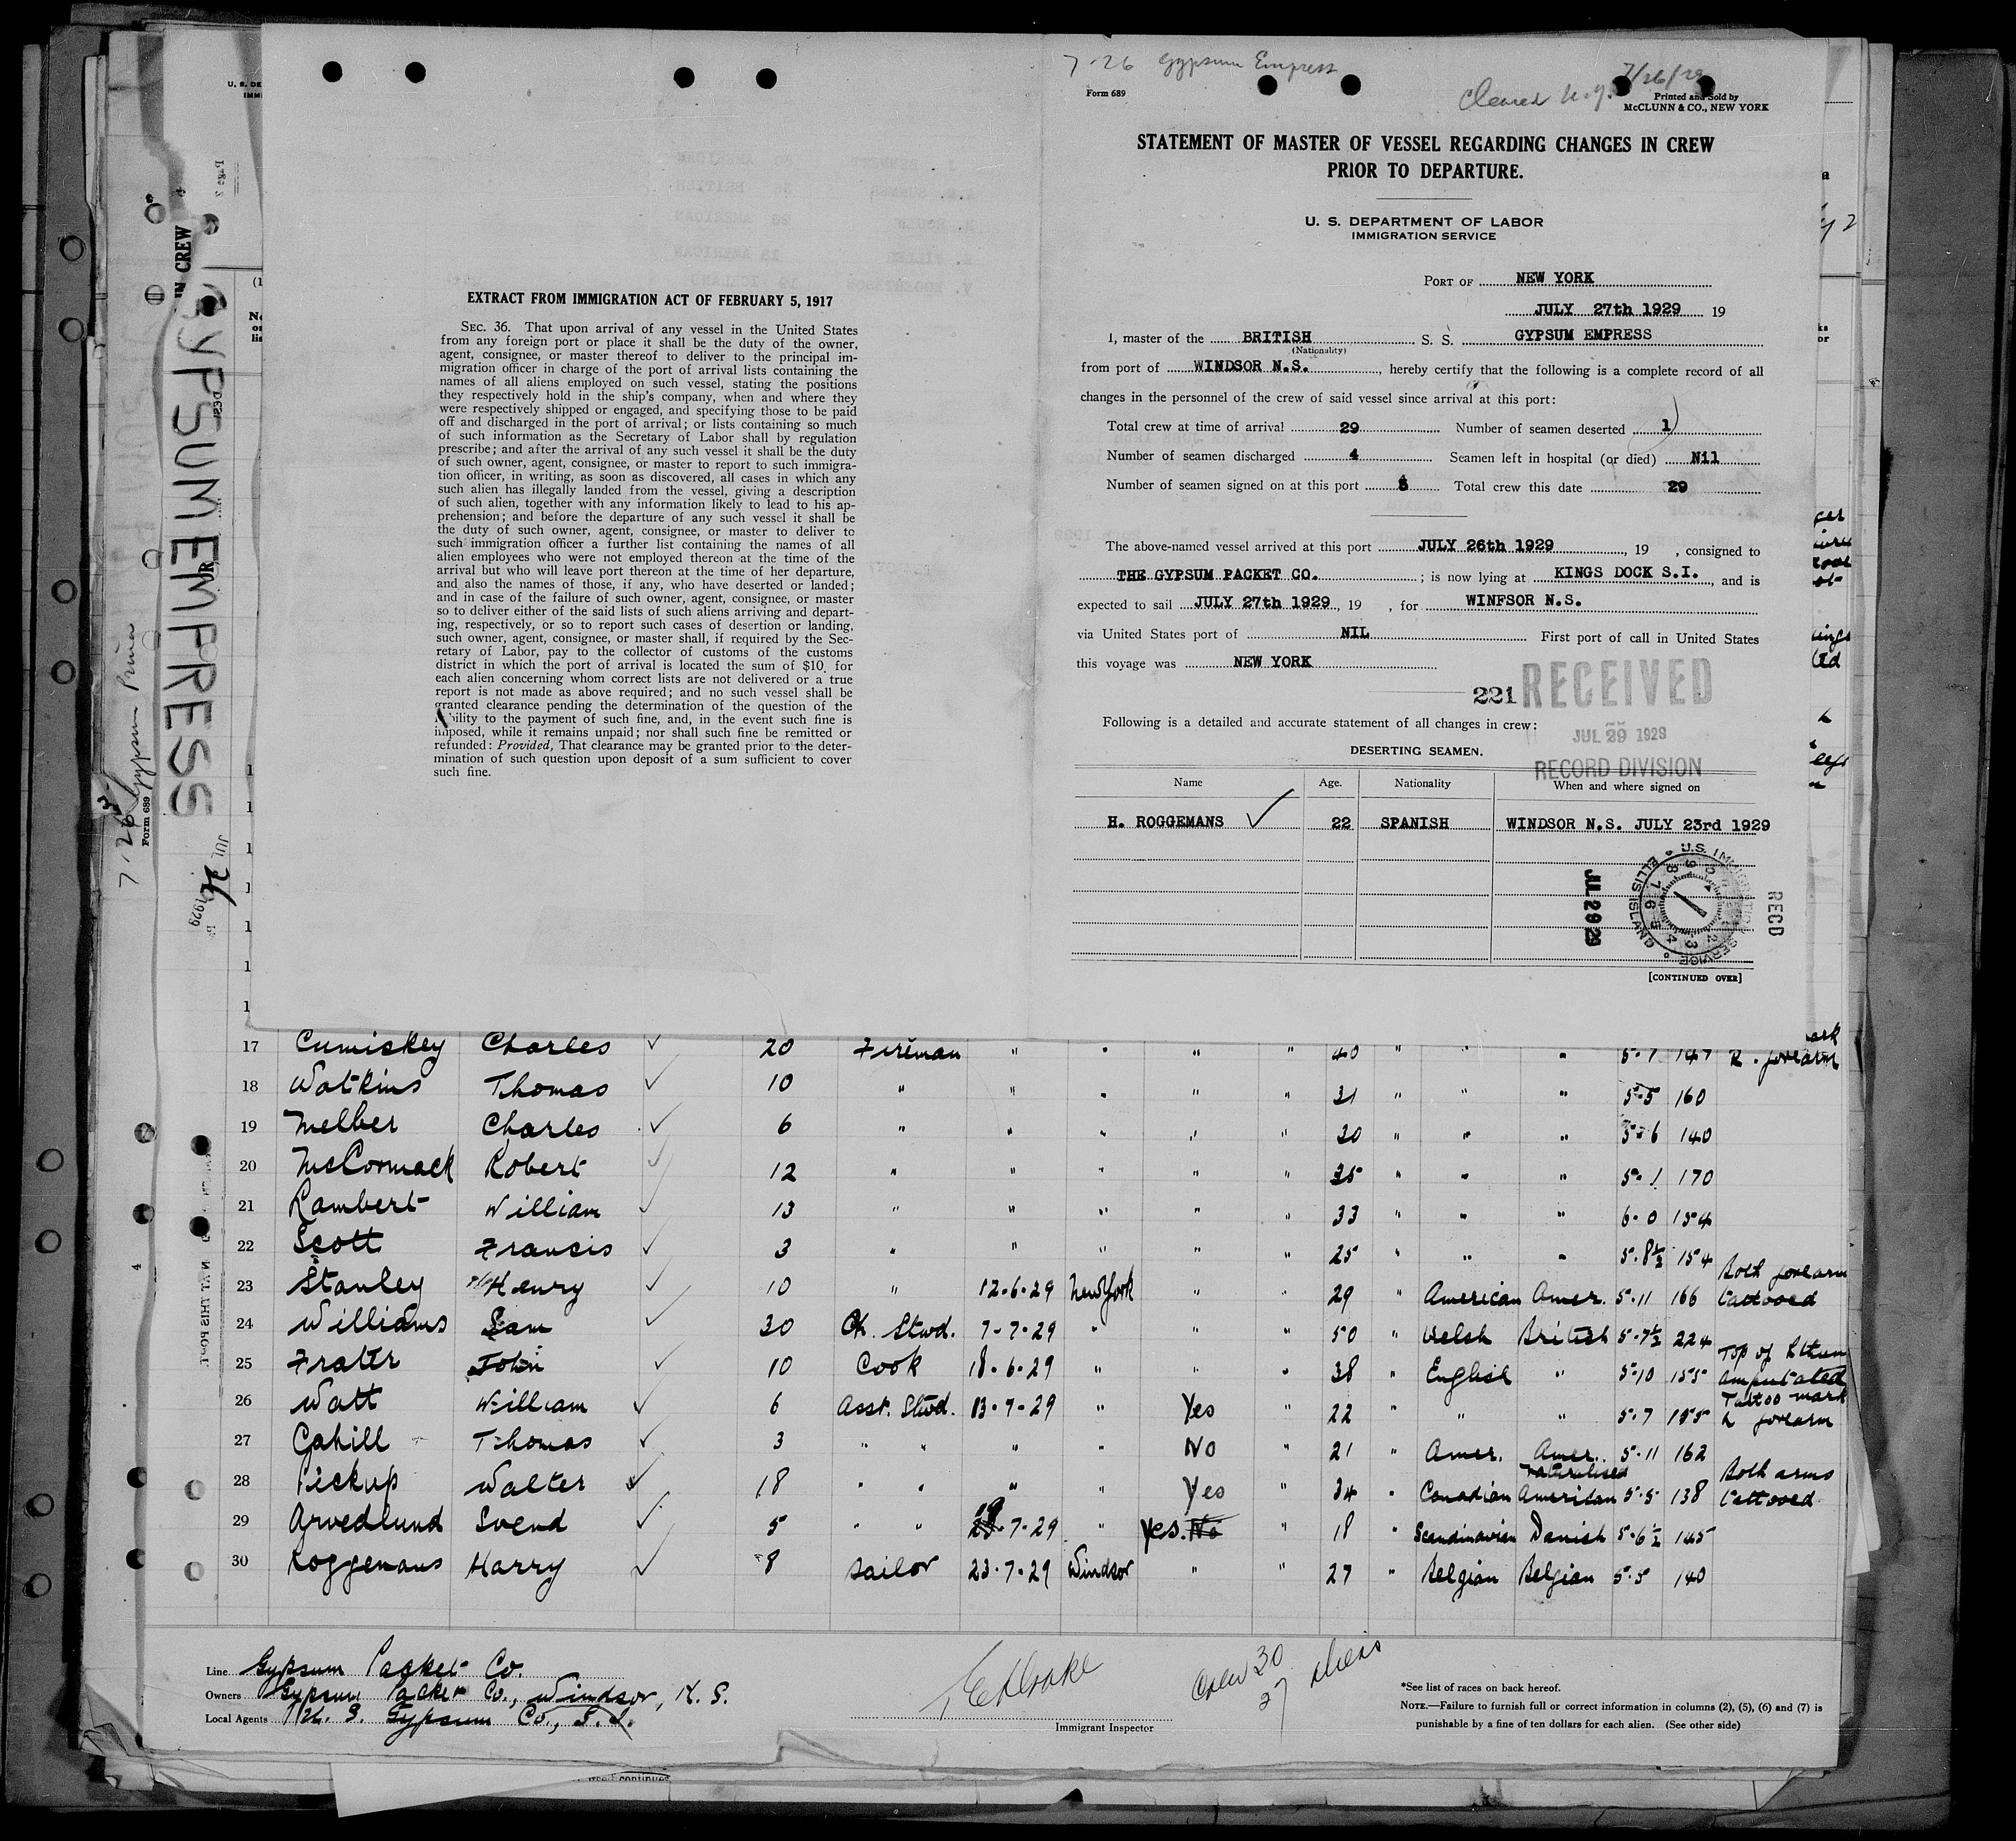 7-26 Gypsum Empress
Cleared N.Y. 7/26/29
Form 689
Printed and Sold by
McCLUNN & CO., NEW YORK
STATEMENT OF MASTER OF VESSEL REGARDING CHANGES IN CREW
PRIOR TO DEPARTURE.
U. S. DEPARTMENT OF LABOR
IMMIGRATION SERVICE
PORT OF NEW YORK
JULY 27th 1929 19
I, master of the BRITISH S. S. GYPSUM EMPRESS
(Nationality)
from port of WINDSOR N.S. , hereby certify that the following is a complete record of all
changes in the personnel of the crew of said vessel since arrival at this port:
Total crew at time of arrival 29 Number of seamen deserted 1
Number of seamen discharged 4 Seamen left in hospital (or died) Nil
Number of seamen signed on at this port Total crew this date 29
The above-named vessel arrived at this port JULY 26th 1929 , 19 , consigned to
THE GYPSUM PACKET CO. ; is now lying at KINGS DOCK S.I. , and is
expected to sail JULY 27th 1929 , 19 , for WINFSOR N.S.
via United States port of NIL First port of call in United States
this voyage was NEW YORK
221 RECEIVED
JUL 29 1929
RECORD DIVISION
Following is a detailed and accurate statement of all changes in crew:
DESERTING SEAMEN.
Name Age. Nationality When and where signed on
H. ROGGEMANS 22 SPANISH WINDSOR N.S. JULY 23rd 1929
JUL 29 29
U.S. IMMIGRATION SERVICE ELLIS ISLAND
RECD
[CONTINUED OVER]
EXTRACT FROM IMMIGRATION ACT OF FEBRUARY 5, 1917
SEC. 36. That upon arrival of any vessel in the United States
from any foreign port or place it shall be the duty of the owner,
agent, consignee, or master thereof to deliver to the principal im-
migration officer in charge of the port of arrival lists containing the
names of all aliens employed on such vessel, stating the positions
they respectively hold in the ship's company, when and where they
were respectively shipped or engaged, and specifying those to be paid
off and discharged in the port of arrival; or lists containing so much
of such information as the Secretary of Labor shall by regulation
prescribe; and after the arrival of any such vessel it shall be the duty
of such owner, agent, consignee, or master to report to such immigra-
tion officer, in writing, as soon as discovered, all cases in which any
such alien has illegally landed from the vessel, giving a description
of such alien, together with any information likely to lead to his ap-
prehension; and before the departure of any such vessel it shall be
the duty of such owner, agent, consignee, or master to deliver to
such immigration officer a further list containing the names of all
alien employees who were not employed thereon at the time of the
arrival but who will leave port thereon at the time of her departure,
and also the names of those, if any, who have deserted or landed;
and in case of the failure of such owner, agent, consignee, or master
so to deliver either of the said lists of such aliens arriving and depart-
ing, respectively, or so to report such cases of desertion or landing,
such owner, agent, consignee, or master shall, if required by the Sec-
retary of Labor, pay to the collector of customs of the customs
district in which the port of arrival is located the sum of $10 for
each alien concerning whom correct lists are not delivered or a true
report is not made as above required; and no such vessel shall be
granted clearance pending the determination of the question of the
bility to the payment of such fine, and, in the event such fine is
imposed, while it remains unpaid; nor shall such fine be remitted or
refunded: Provided, That clearance may be granted prior to the deter-
mination of such question upon deposit of a sum sufficient to cover
such fine.
GYPSUM EMPRESS
IN CREW
JUL 26 1929
7-26 Gypsum Prince
Form 689
17 Cumiskey Charles ✓ 20 Fireman " " " " 40 " " " 5-7 147 R. forearm
18 Watkins Thomas ✓ 10 " " " " " 31 " " " 5-5 160
19 Melber Charles ✓ 6 " " " " " 30 " " " 5-6 140
20 McCormack Robert ✓ 12 " " " " " 35 " " " 5-1 170
21 Lambert William ✓ 13 " " " " " 33 " " " 6-0 154
22 Scott Francis ✓ 3 " " " " " 25 " " " 5-8½ 154
23 Stanley Henry ✓ 10 " 12-6-29 New York " " 29 " American Amer. 5-11 166 Both forearm tattooed
24 Williams Sam ✓ 30 Ch. Stwd. 7-7-29 " " " 50 " Welsh British 5-7½ 224
25 Frater John ✓ 10 Cook 18-6-29 " " " 38 " English " 5-10 155 Top of L thum amputated
26 Watt William ✓ 6 Asst. Stwd. 13-7-29 " Yes " 22 " " " 5-7 155 Tattoo mark L forearm
27 Cahill Thomas ✓ 3 " " " " No " 21 " Amer. Amer. 5-11 162
28 Pickup Walter ✓ 18 " " " " Yes " 34 " Canadian naturalised American 5-5 138 Both arms tattooed
29 Arvedlund Svend ✓ 5 " " 19-7-29 " Yes. No " 18 " Scandinavian Danish 5-6½ 145
30 Roggemans Harry ✓ 8 Sailor 23-7-29 Windsor " " 27 " Belgian Belgian 5-5 140
Line Gypsum Packet Co.
Owners Gypsum Packet Co., Windsor, N. S.
Local Agents U. S. Gypsum Co., S. I.
Immigrant Inspector
Crew 30
27 aliens
*See list of races on back hereof.
NOTE.—Failure to furnish full or correct information in columns (2), (5), (6) and (7) is
punishable by a fine of ten dollars for each alien. (See other side)